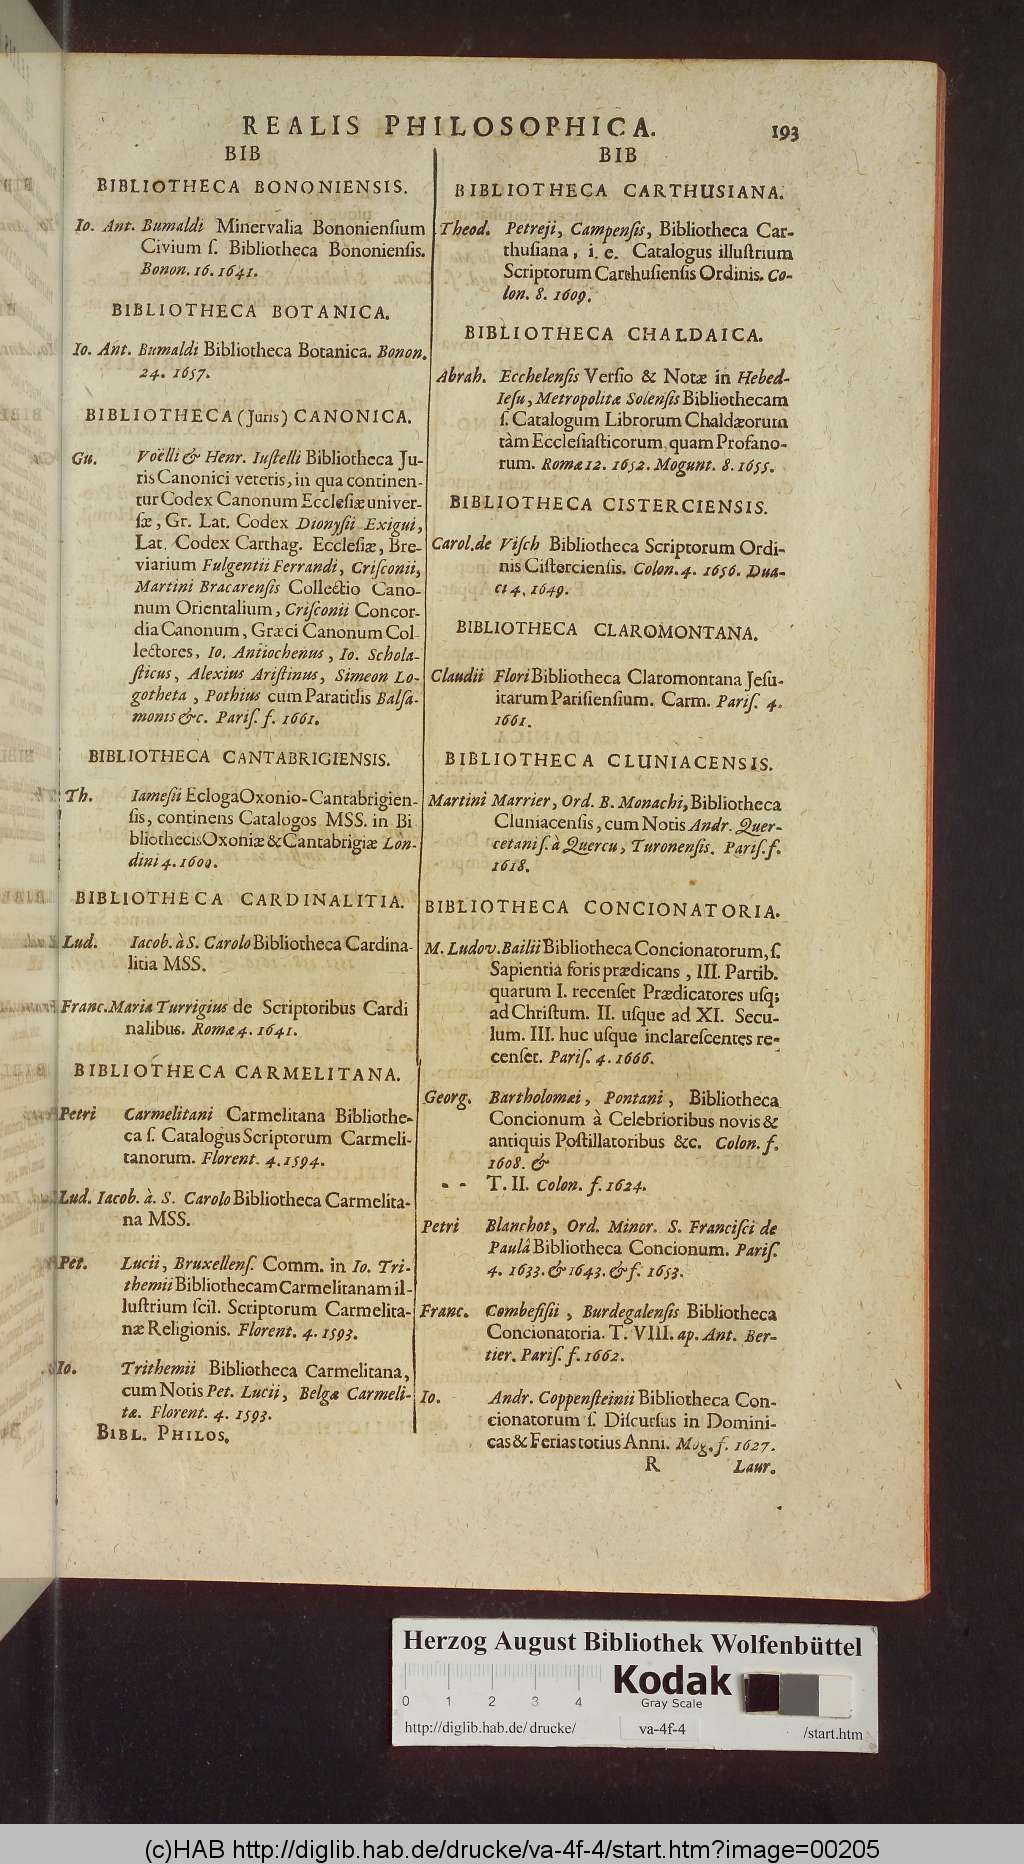 REALIS PHILOSOPHICA. 193
BIB
BIBLIOTHECA BONONIENSIS.
Io. Ant. Bumaldi Minervalia Bononienſium
Civium ſ. Bibliotheca Bononienſis.
Bonon. 16. 1641.
BIBLIOTHECA BOTANICA.
Io. Ant. Bumaldi Bibliotheca Botanica. Bonon.
24. 1657.
BIBLIOTHECA (Juris) CANONICA.
Gu. Voëlli & Henr. Iuſtelli Bibliotheca Ju-
ris Canonici veteris, in qua continen-
tur Codex Canonum Eccleſiæ univer-
ſæ, Gr. Lat. Codex Dionyſii Exigui,
Lat. Codex Carthag. Eccleſiæ, Bre-
viarium Fulgentii Ferrandi, Criſconii,
Martini Bracarenſis Collectio Cano-
num Orientalium, Criſconii Concor-
dia Canonum, Græci Canonum Col
lectores, Io. Antiochenus, Io. Schola-
ſticus, Alexius Ariſtinus, Simeon Lo-
gotheta, Pothius cum Paratitlis Balſa-
monis &c. Pariſ. f. 1661.
BIBLIOTHECA CANTABRIGIENSIS.
Th. Iameſii Ecloga Oxonio-Cantabrigien-
ſis, continens Catalogos MSS. in Bi
bliothecis Oxoniæ & Cantabrigiæ Lon-
dini 4. 1600.
BIBLIOTHECA CARDINALITIA.
Lud. Iacob. à S. Carolo Bibliotheca Cardina-
litia MSS.
Franc. Maria Turrigius de Scriptoribus Cardi
nalibus. Romæ 4. 1641.
BIBLIOTHECA CARMELITANA.
Petri Carmelitani Carmelitana Bibliothe-
ca ſ. Catalogus Scriptorum Carmeli-
tanorum. Florent. 4. 1594.
Lud. Iacob. à. S. Carolo Bibliotheca Carmelita-
na MSS.
Pet. Lucii, Bruxellenſ. Comm. in Io. Tri-
themii Bibliothecam Carmelitanam il-
luſtrium ſcil. Scriptorum Carmelita-
næ Religionis. Florent. 4. 1593.
Io. Trithemii Bibliotheca Carmelitana,
cum Notis Pet. Lucii, Belgæ Carmeli-
tæ. Florent. 4. 1593.
BIBL. PHILOS.
BIB
BIBLIOTHECA CARTHUSIANA.
Theod. Petreji, Campenſis, Bibliotheca Car-
thuſiana, i. e. Catalogus illuſtrium
Scriptorum Carthuſienſis Ordinis. Co-
lon. 8. 1609.
BIBLIOTHECA CHALDAICA.
Abrah. Ecchelenſis Verſio & Notæ in Hebed-
Ieſu, Metropolitæ Solenſis Bibliothecam
ſ. Catalogum Librorum Chaldæorum
tàm Eccleſiaſticorum quam Profano-
rum. Romæ 12. 1652. Mogunt. 8. 1655.
BIBLIOTHECA CISTERCIENSIS.
Carol. de Viſch Bibliotheca Scriptorum Ordi-
nis Ciſtercienſis. Colon. 4. 1656. Dua-
ci 4. 1649.
BIBLIOTHECA CLAROMONTANA.
Claudii Flori Bibliotheca Claromontana Jeſu-
itarum Pariſienſium. Carm. Pariſ. 4.
1661.
BIBLIOTHECA CLUNIACENSIS.
Martini Marrier, Ord. B. Monachi, Bibliotheca
Cluniacenſis, cum Notis Andr. Quer-
cetani ſ. à Quercu, Turonenſis. Pariſ. f.
1618.
BIBLIOTHECA CONCIONATORIA.
M. Ludov. Bailii Bibliotheca Concionatorum, ſ.
Sapientia foris prædicans, III. Partib.
quarum I. recenſet Prædicatores uſq;
ad Chriſtum. II. uſque ad XI. Secu-
lum. III. huc uſque inclareſcentes re-
cenſet. Pariſ. 4. 1666.
Georg. Bartholomæi, Pontani, Bibliotheca
Concionum à Celebrioribus novis &
antiquis Poſtillatoribus &c. Colon. f.
1608. &
- - T. II. Colon. f. 1624.
Petri Blanchot, Ord. Minor. S. Franciſci de
Paulâ Bibliotheca Concionum. Pariſ.
4. 1633. & 1643. & f. 1653.
Franc. Combefiſii, Burdegalenſis Bibliotheca
Concionatoria. T. VIII. ap. Ant. Ber-
tier. Pariſ. f. 1662.
Io. Andr. Coppenſteinii Bibliotheca Con-
cionatorum ſ. Diſcurſus in Domini-
cas & Ferias totius Anni. Mog. f. 1627.
R Laur.
Herzog August Bibliothek Wolfenbüttel
0 1 2 3 4
Kodak
Gray Scale
http://diglib.hab.de/drucke/ va-4f-4 /start.htm
(c)HAB http://diglib.hab.de/drucke/va-4f-4/start.htm?image=00205